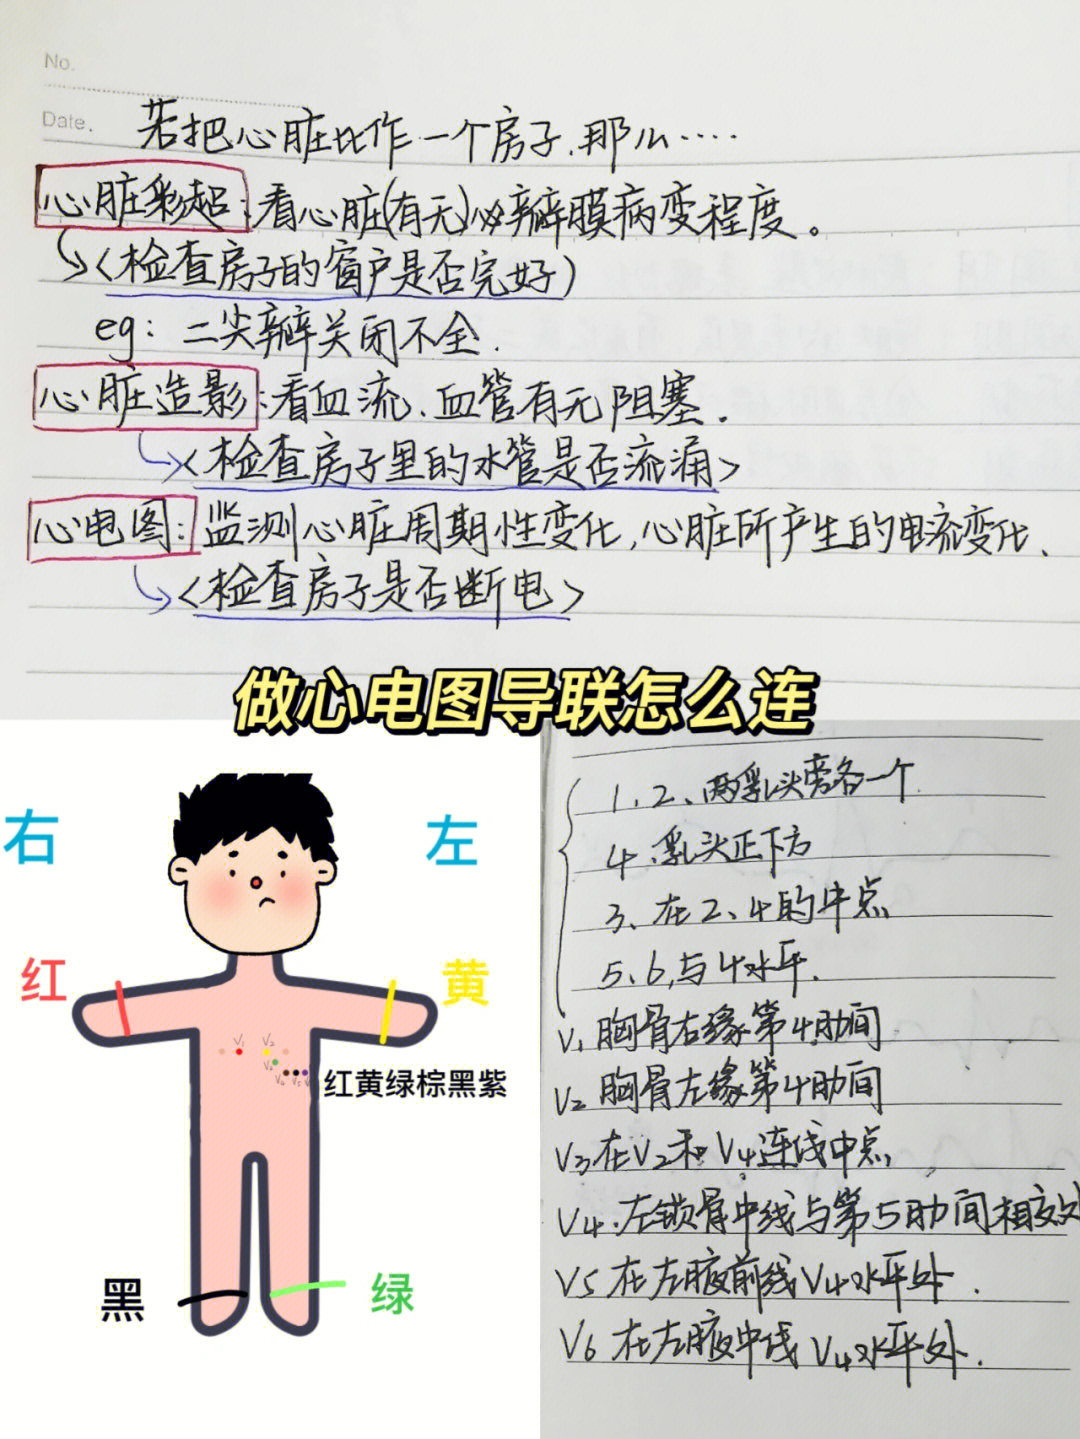 No.
Date.
若把心脏比作一个房子.那么····
心脏彩超:看心脏(有无)瓣膜病变程度。
<检查房子的窗户是否完好)
eg: 二尖瓣关闭不全.
心脏造影:看血流、血管有无阻塞.
<检查房子里的水管是否流涌>
心电图:监测心脏周期性变化,心脏所产生的电流变化、
<检查房子是否断电>
做心电图导联怎么连
右 左
红 黄
V1 V2
V3
V4 V5 V6
红黄绿棕黑紫
黑 绿
1、2、两乳头旁各一个.
4.乳头正下方
3、在2、4的中点
5、6,与4水平.
V1 胸骨右缘第4肋间
V2 胸骨左缘第4肋间
V3在V2和V4连线中点
V4.左锁骨中线与第5肋间相交处
V5在左腋前线V4水平处.
V6 在左腋中线V4水平处.